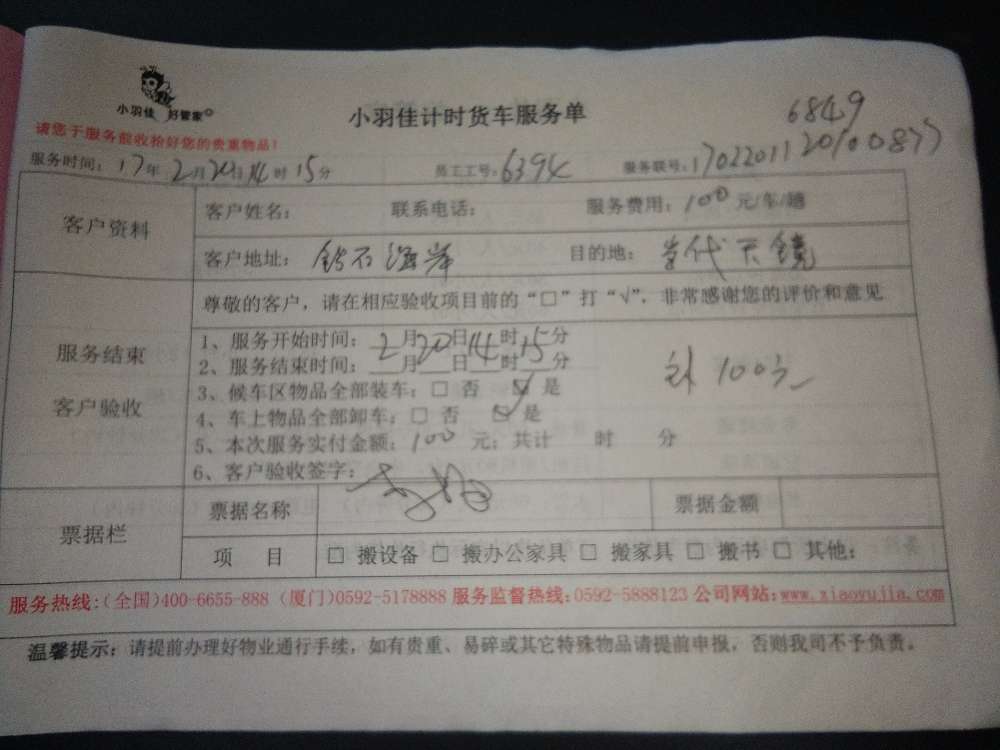 小羽佳 好管家
小羽佳计时货车服务单
6849
请您于服务前收拾好您的贵重物品！
服务时间：17年2月20日14时15分 员工工号：6394 服务联号：17022011 20100877
客户资料
客户姓名： 联系电话： 服务费用：100元/车/趟
客户地址：钻石海岸 目的地：当代天境
服务结束
客户验收
尊敬的客户，请在相应验收项目前的“□”打“√”，非常感谢您的评价和意见
1、服务开始时间：2月20日14时15分
2、服务结束时间：__月__日__时__分
3、候车区物品全部装车：□ 否 ☑ 是
4、车上物品全部卸车：□ 否 ☑ 是
5、本次服务实付金额：100元；共计 时 分
6、客户验收签字：
100元
票据栏
票据名称 票据金额
项 目 □ 搬设备 □ 搬办公家具 □ 搬家具 □ 搬书 □ 其他：
服务热线：(全国)400-6655-888 (厦门)0592-5178888 服务监督热线：0592-5888123 公司网站：www.xiaoyujia.com
温馨提示：请提前办理好物业通行手续，如有贵重、易碎或其它特殊物品请提前申报，否则我司不予负责。